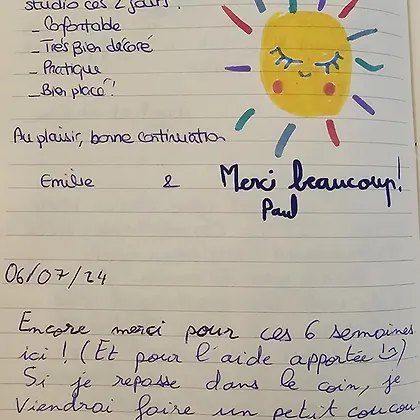 studio ces 2 jours :
_ Confortable
_ Très Bien décoré
_ Pratique
_ Bien placé !
Au plaisir, bonne continuation
Emilie & Merci beaucoup!
Paul
06/07/24
Encore merci pour ces 6 semaines
ici ! (Et pour l'aide apportée :))
Si je repasse dans le coin, je
viendrai faire un petit coucou